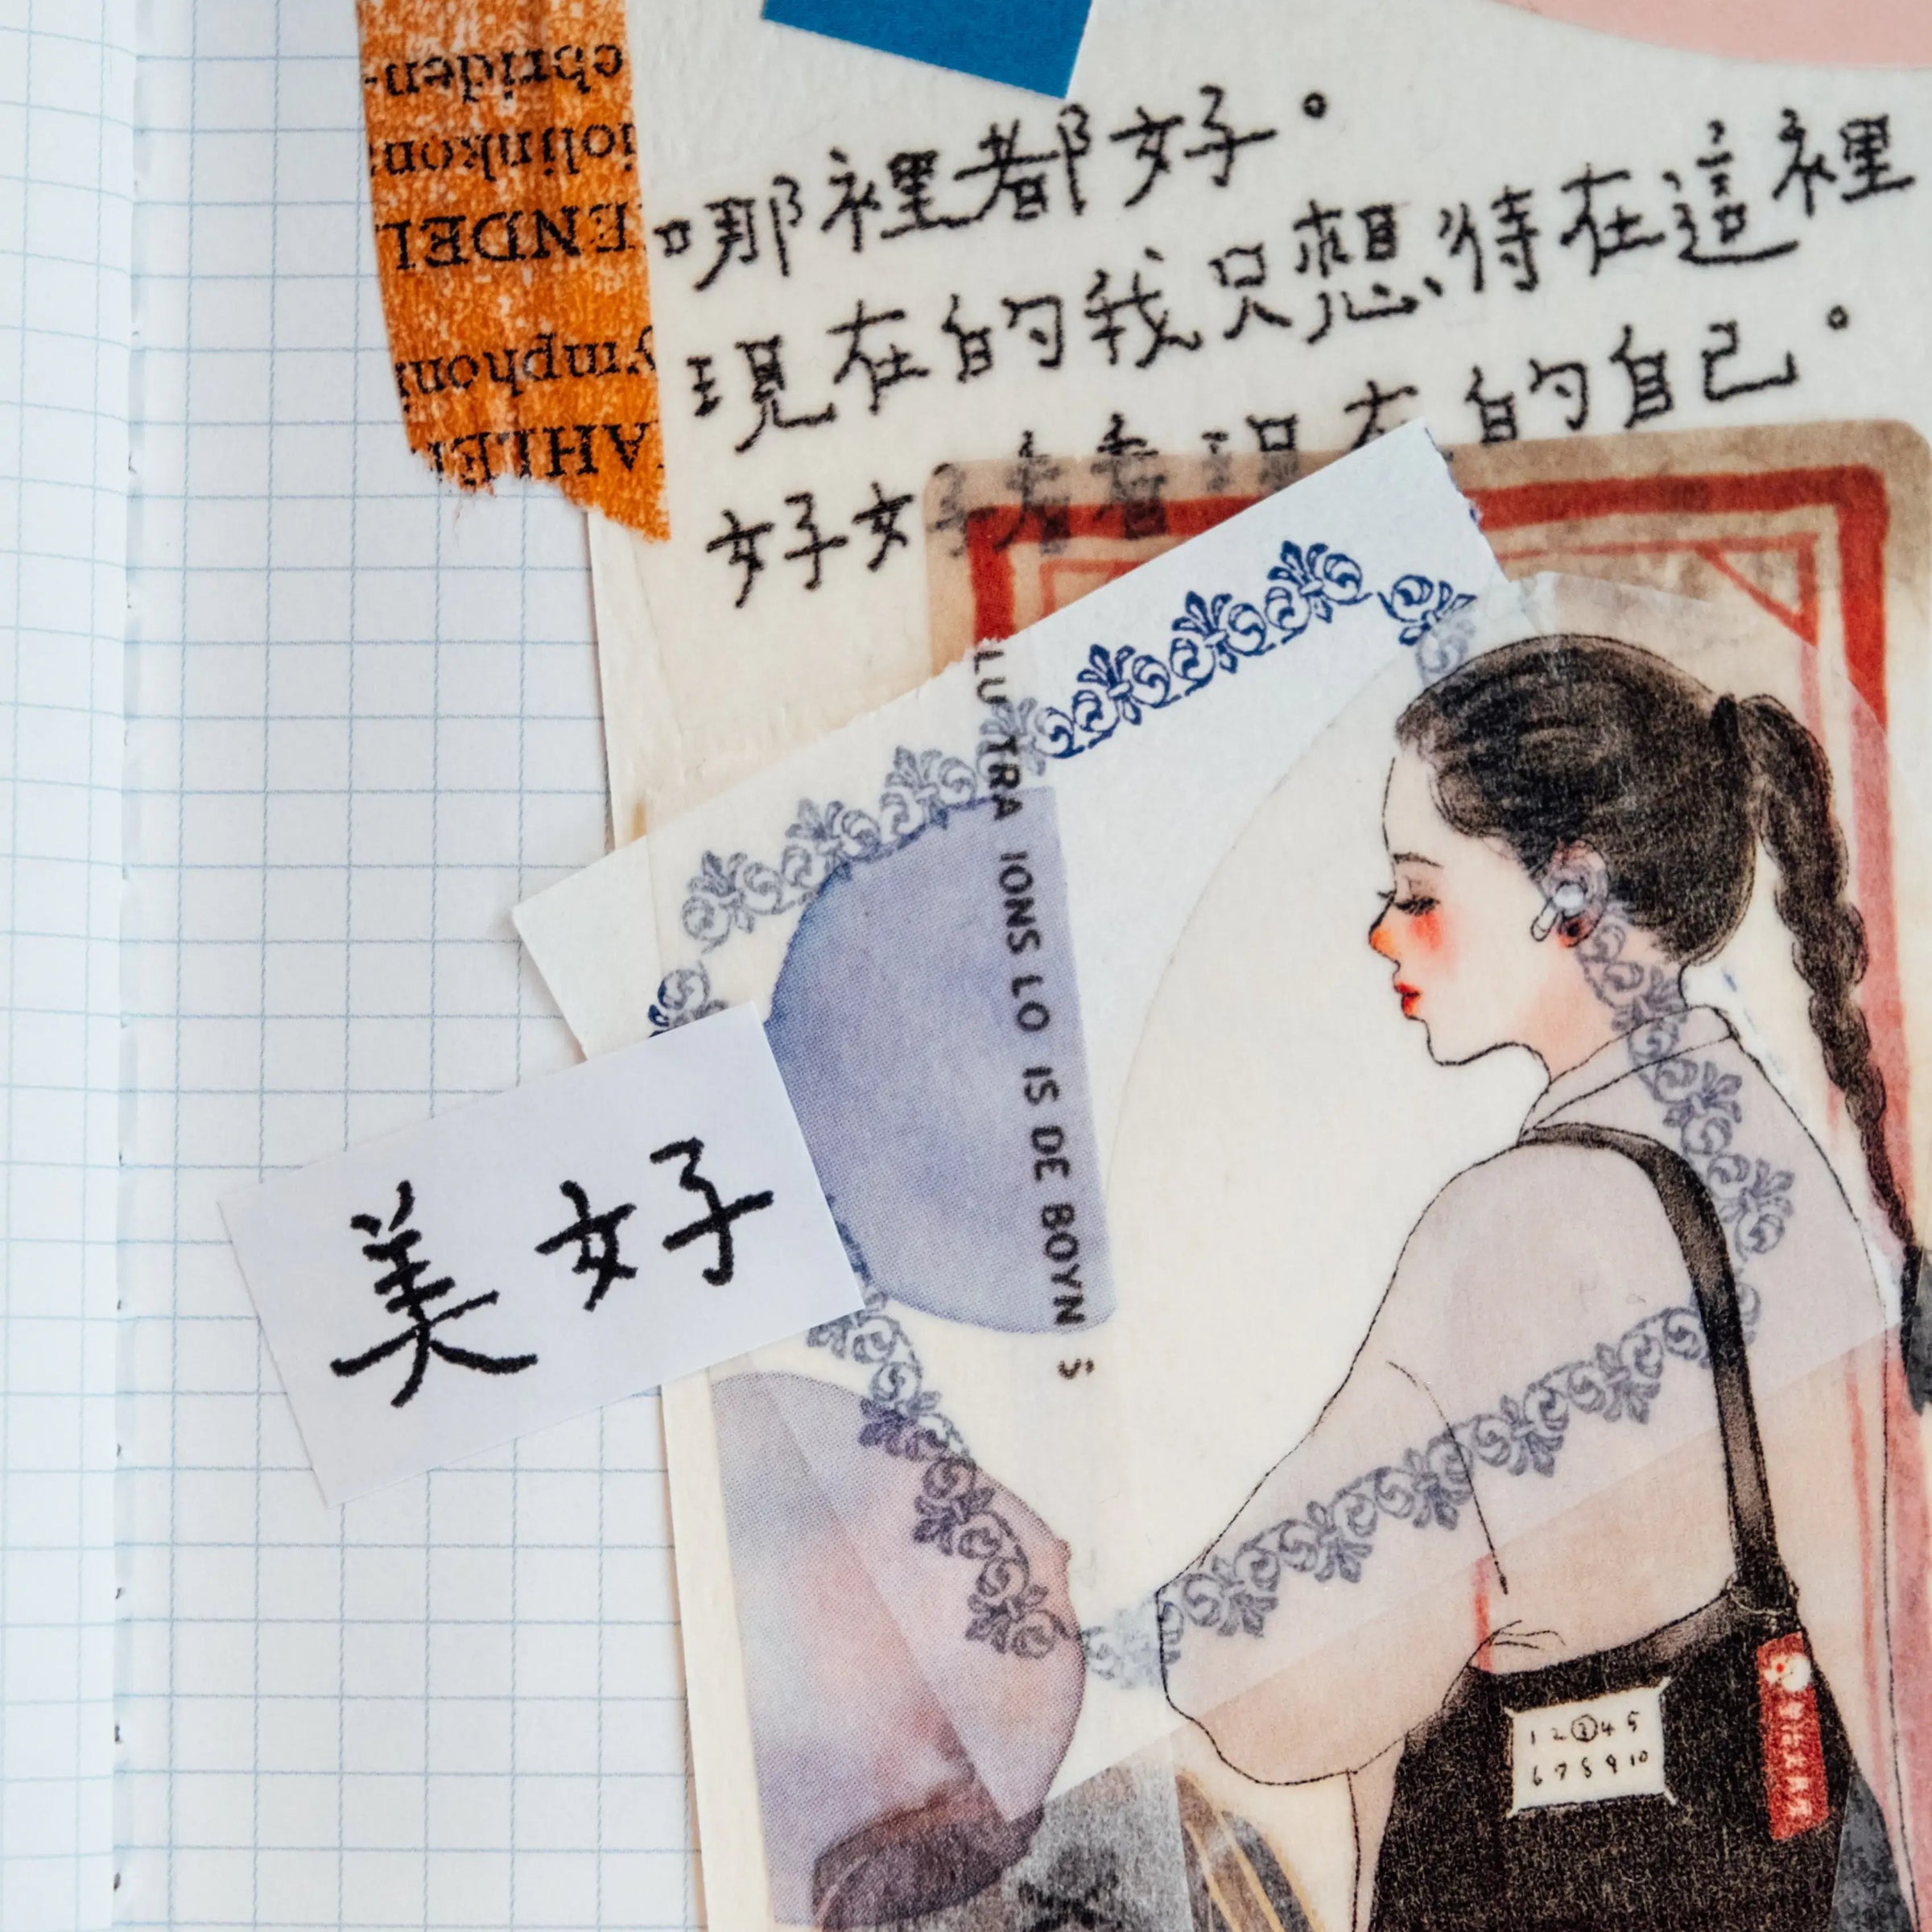 哪裡都好。
現在的我只想待在這裡
好好看看現在的自己。
AHLE
ymphoni
ENDEL
iolinkon
ebriden-
LU TRA IONS LO IS DE BOYN S
美好
1 2 3 4 5
6 7 8 9 10